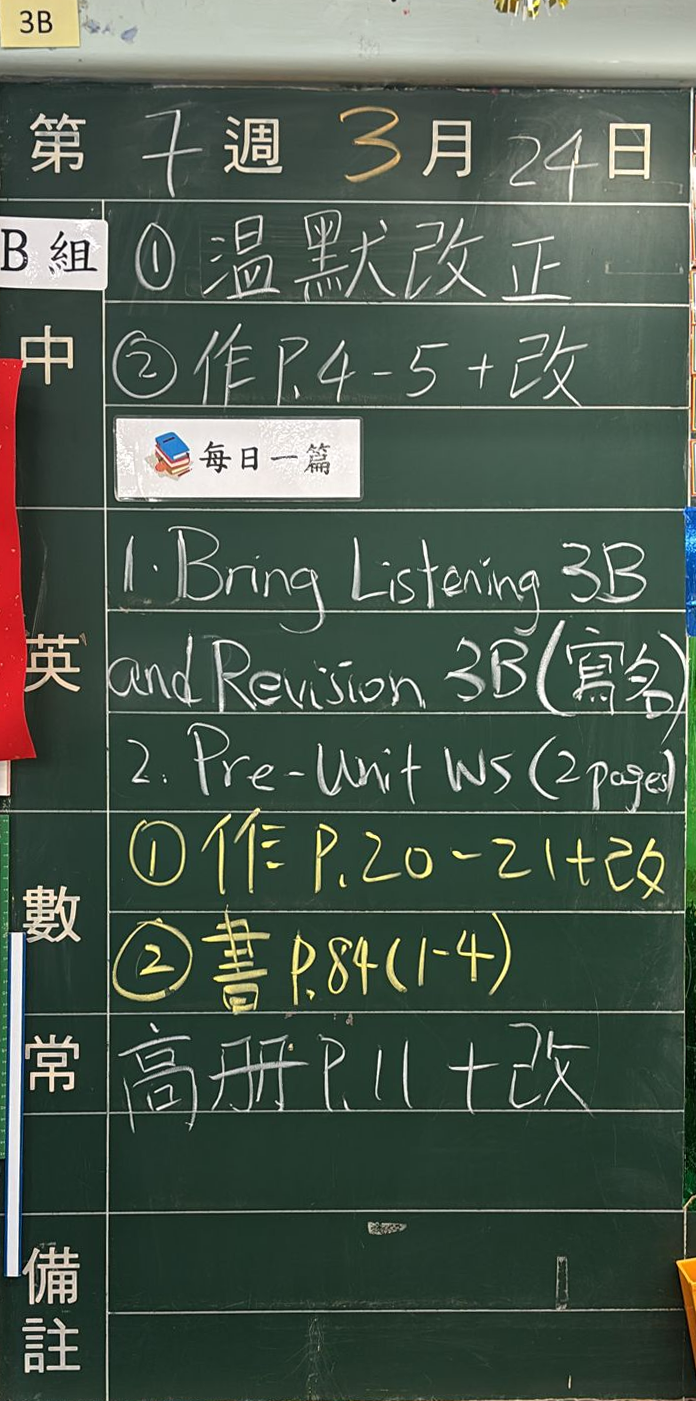 3B
第 7 週 3 月 24 日
B 組 ① 温默改正
中 ② 作 P.4-5+改
每日一篇
1. Bring Listening 3B
英 and Revision 3B (寫名)
2. Pre-Unit WS (2 pages)
① 作 P.20-21+改
數 ② 書 P.84 (1-4)
常 高册 P.11+改
備
註